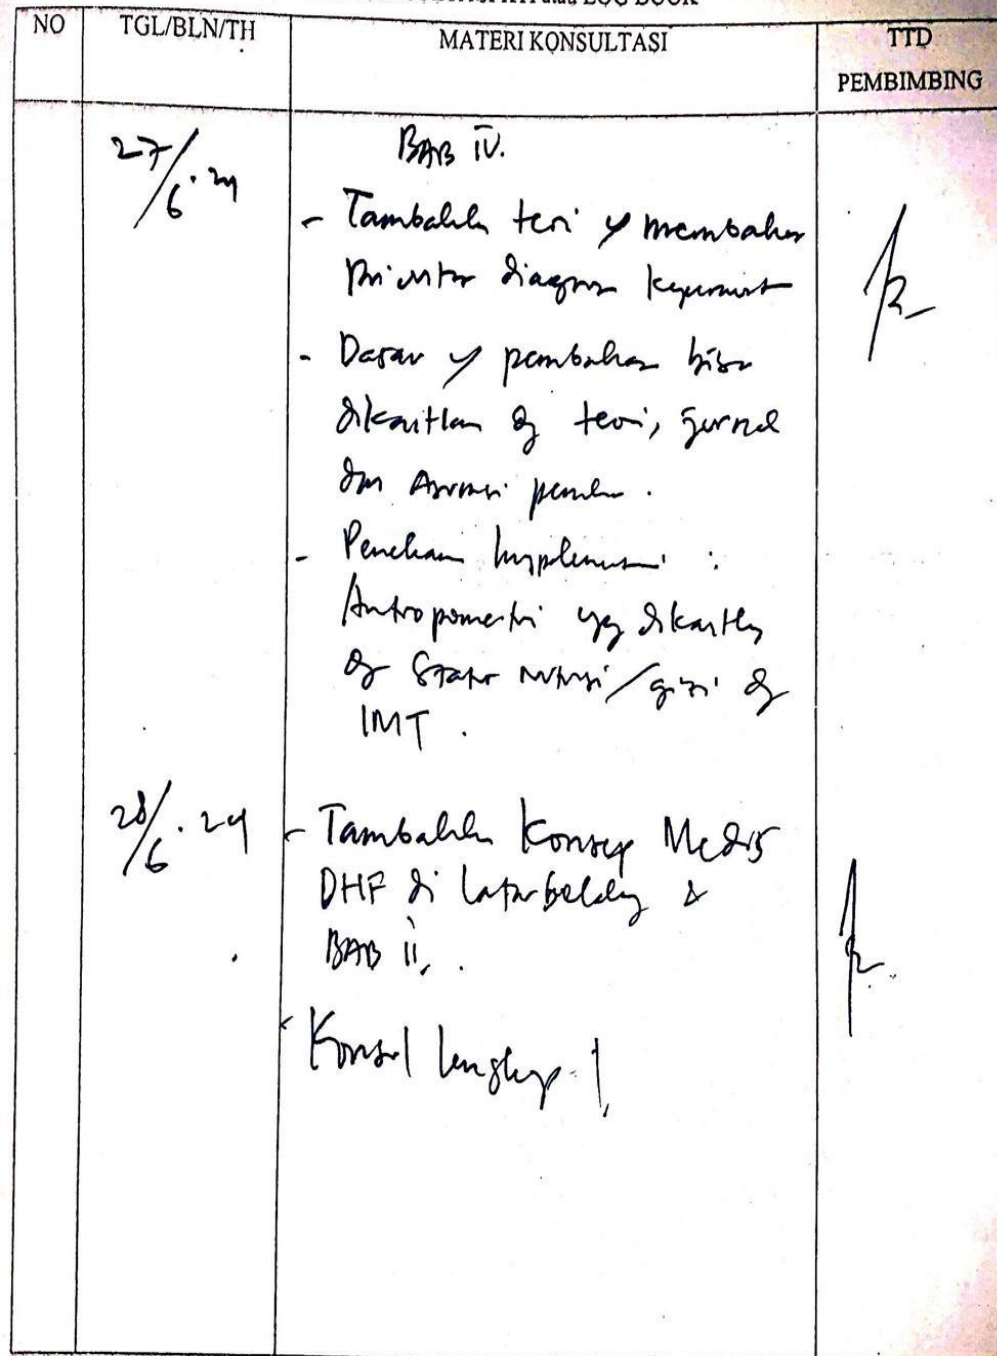 KTI atau LOG BOOK
NO TGL/BLN/TH MATERI KONSULTASI TTD
PEMBIMBING
27/6.24 BAB IV.
- Tambahkn teori yg membahas
prioritas diagnosa keperawat
- Dasar yg pembahasan bisa
dikaitkan dg teori, jurnal
dan Asumsi penulis.
- Penekanan Implementasi :
Antropometri yg dikaitkn
dg Status nutrisi/gizi dg
IMT.
28/6.24 - Tambahkn Konsep Medis
DHF di latar belakang &
BAB II,.
- Konsul lengkap